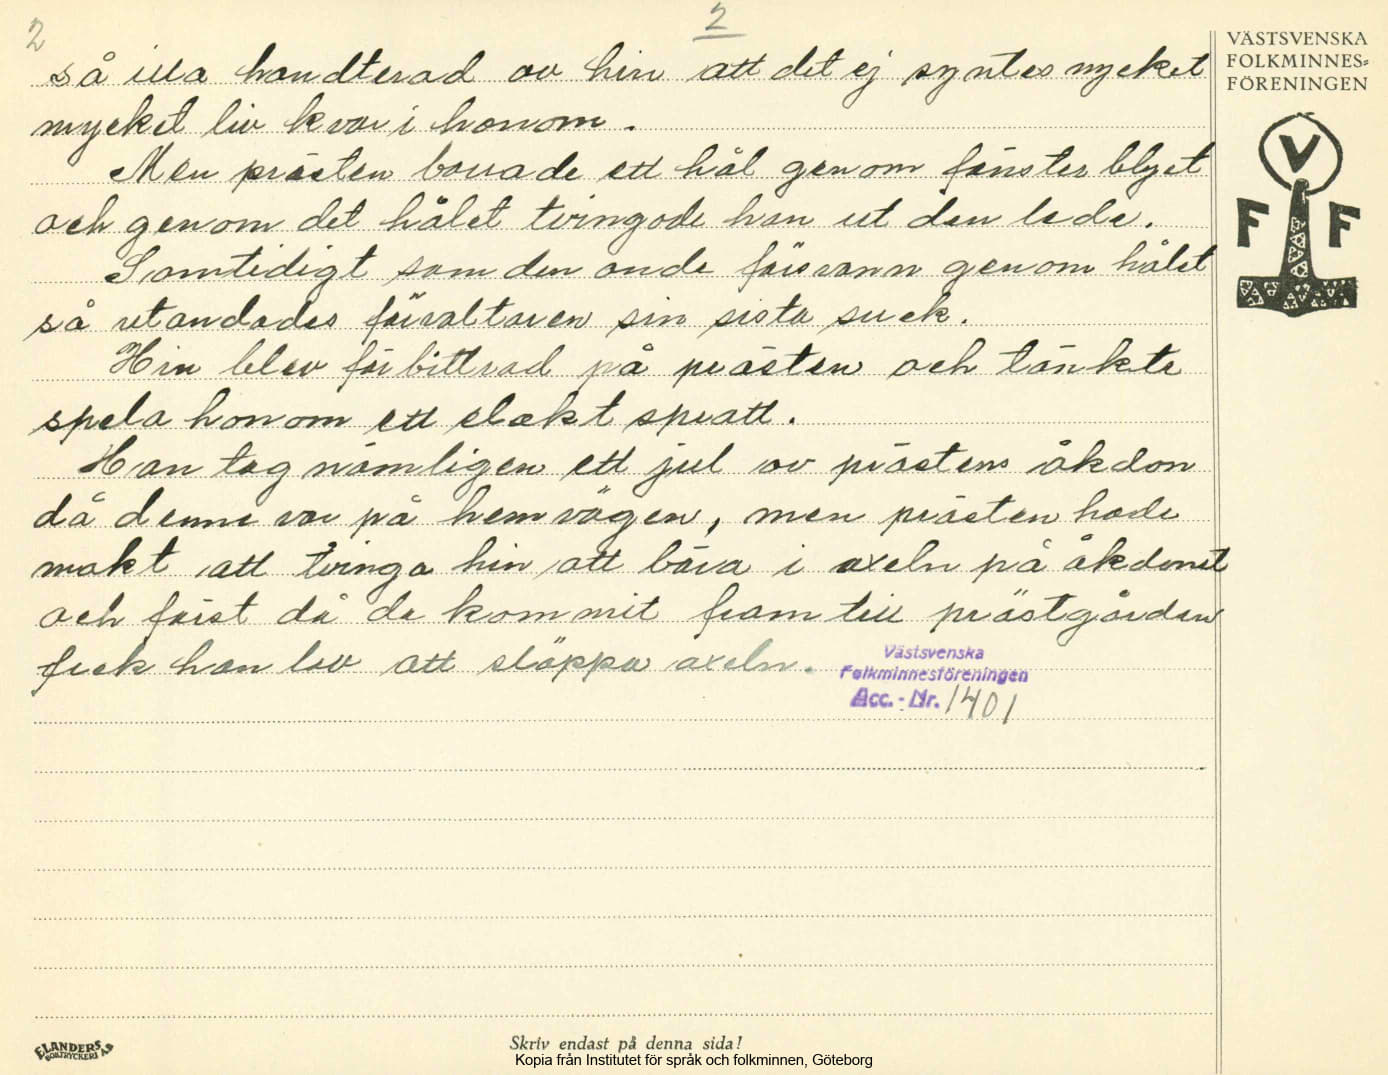 2
2
så illa handterad av hin att det ej syntes mycket
mycket liv kvar i honom.
Men prästen borrade ett hål genom fönster blyet
och genom det hålet tvingade han ut den lede.
Samtidigt som den onde försvann genom hålet
så utandades förvaltaren sin sista suck.
Hin blev förbittrad på prästen och tänkte
spela honom ett elakt spratt.
Han tog nämligen ett jul av prästens åkdon
då denne var på hemvägen, men prästen hade
makt att tvinga hin att bära i axeln på åkdonet
och först då de kommit fram till prästgården
fick han lov att släppa axeln.
Västsvenska
Folkminnesföreningen
Acc.-Nr. 1401
VÄSTSVENSKA
FOLKMINNES=
FÖRENINGEN
V
F F
ELANDERS
BOKTRYCKERI AB
Skriv endast på denna sida!
Kopia från Institutet för språk och folkminnen, Göteborg